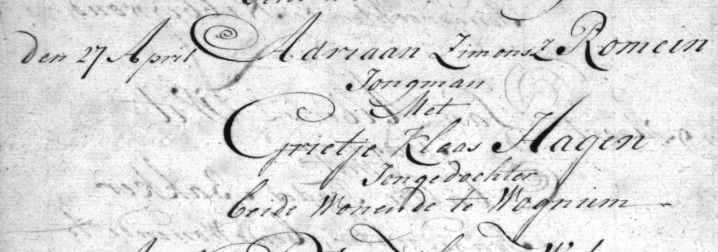 den 27 April Adriaan Zimonsz Romein
Jongman
Met
Grietje Klaas Hagen
Jongedochter
beide Wonende te Wognum